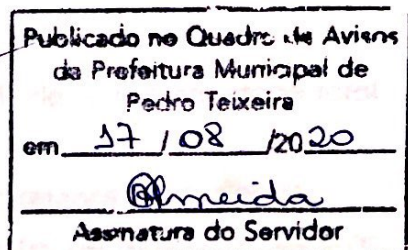 Publicado no Quadro de Avisos
da Prefeitura Municipal de
Pedro Teixeira
em 17 / 08 /2020
Almeida
Assinatura do Servidor